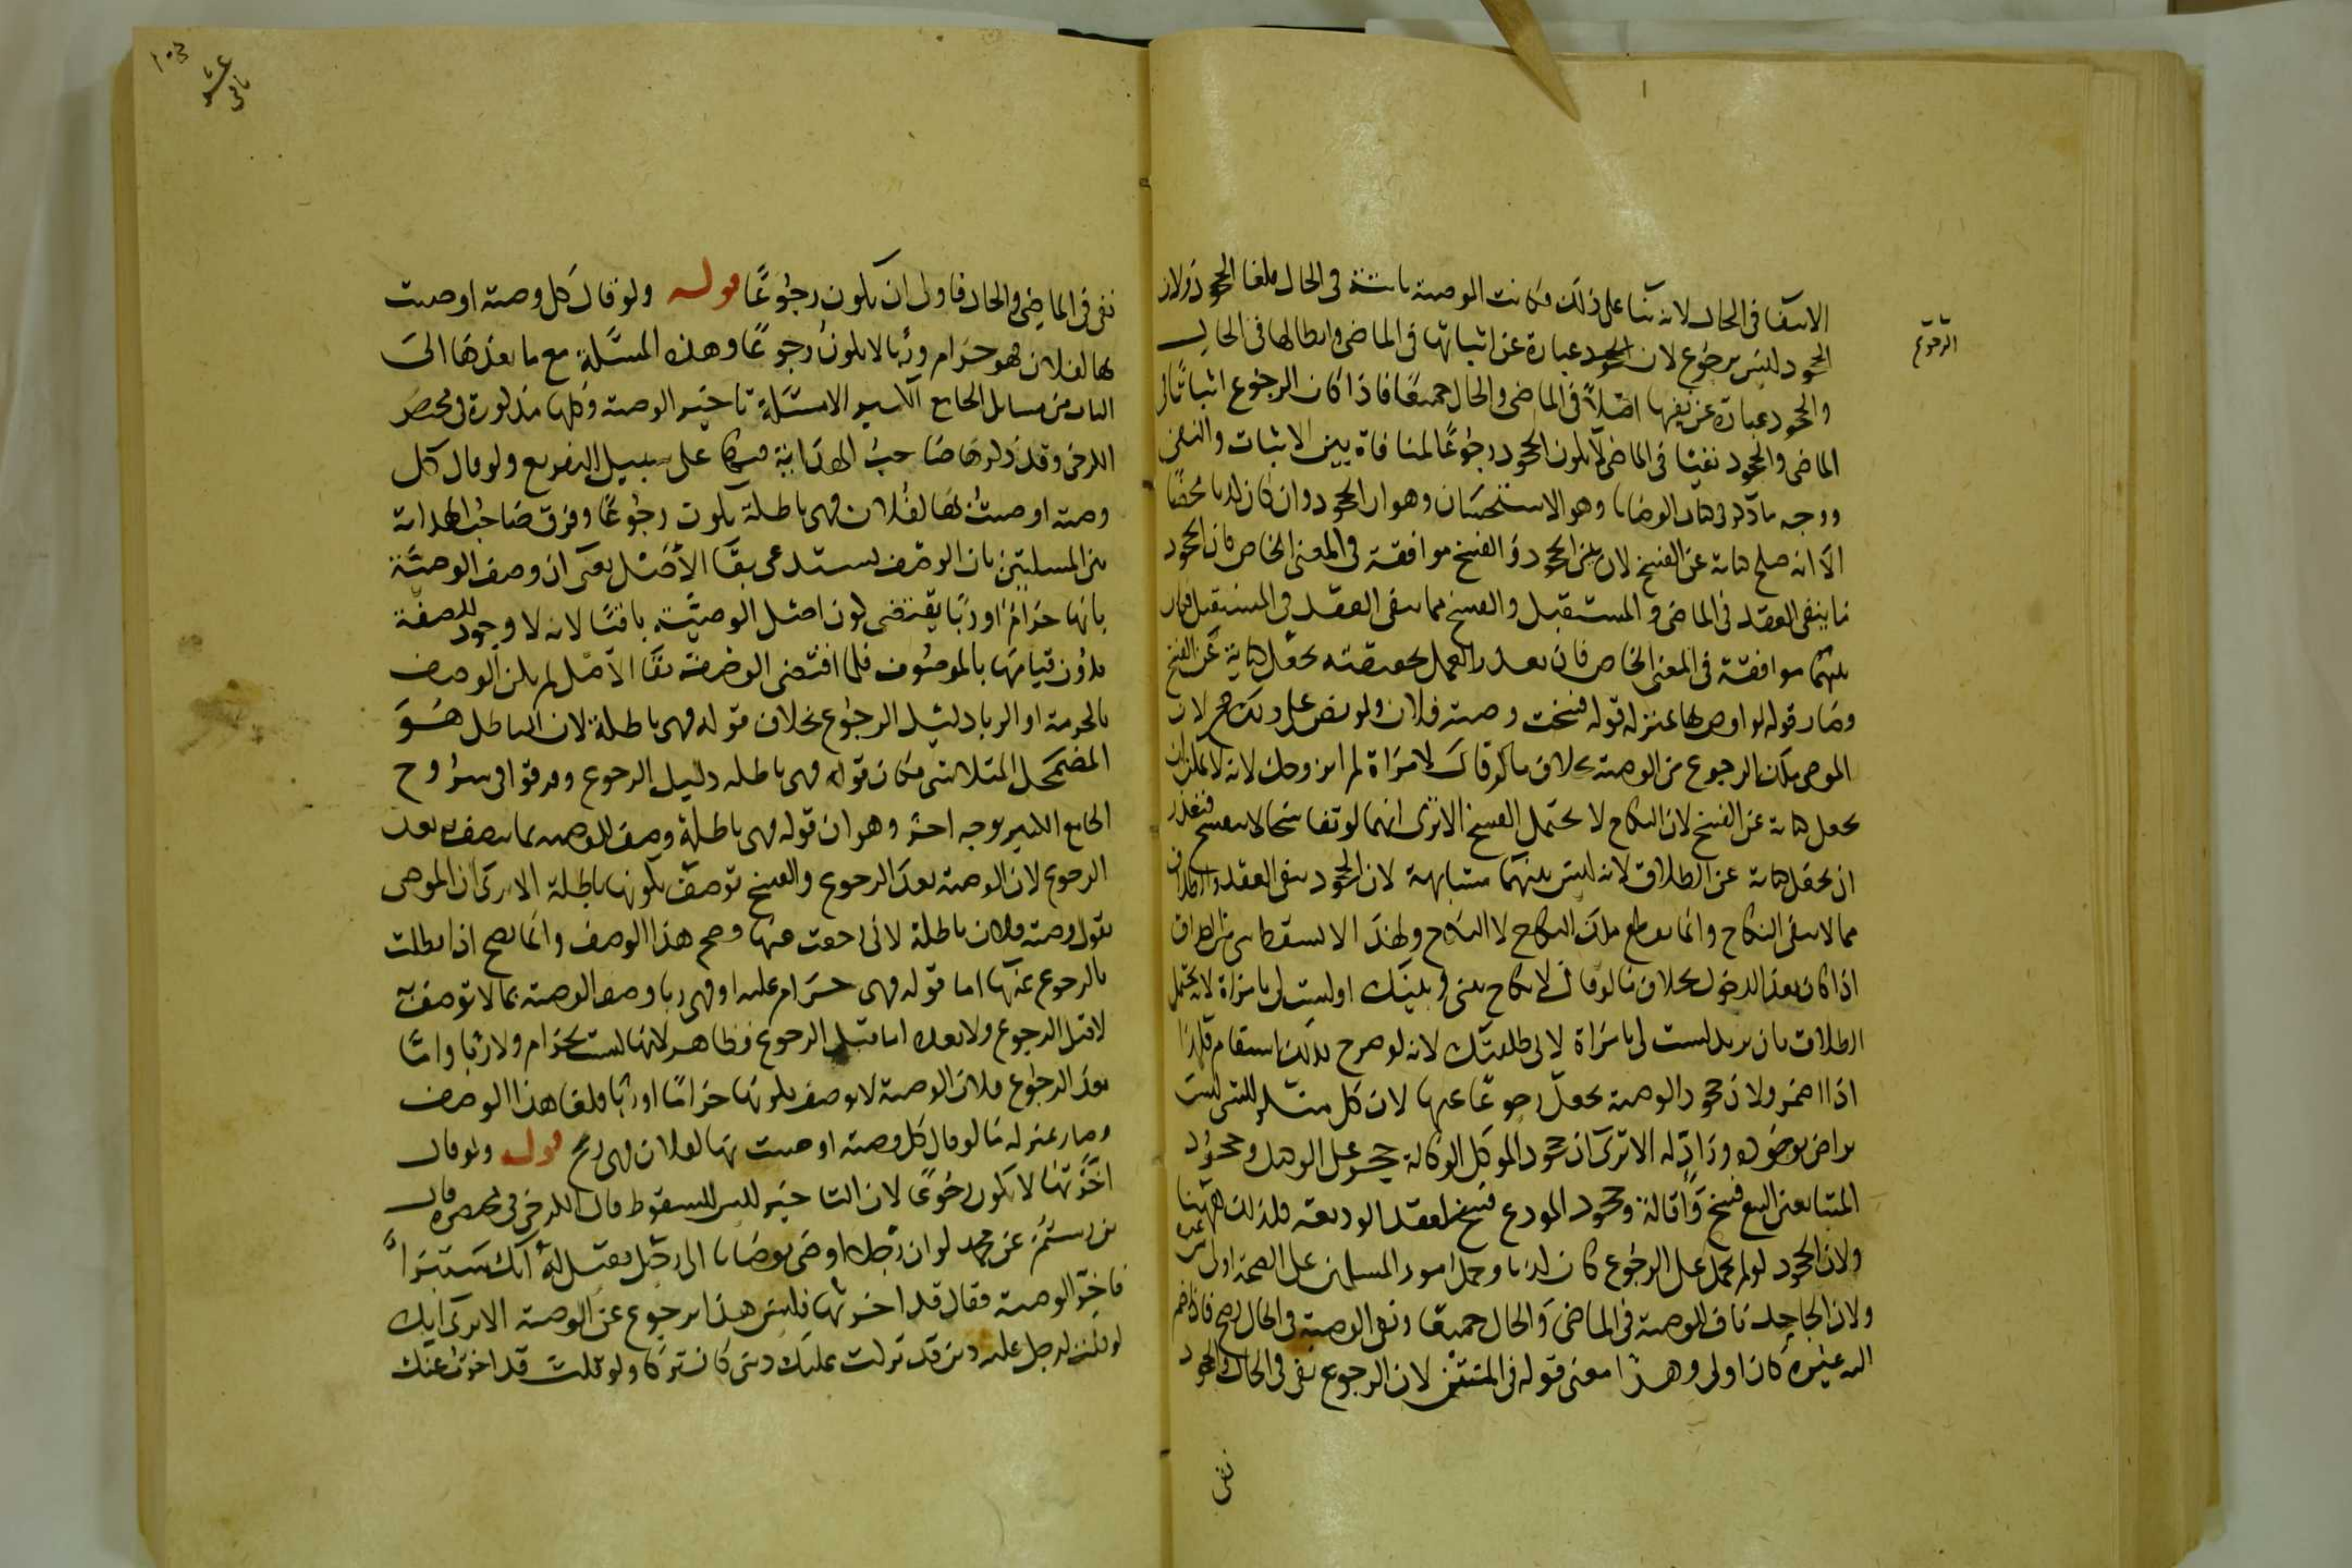 الانتفا فى الحال لانه بنا على ذلك فكانت الوصية ثابتة فى الحال فلغا الجحود ولان
الجحود ليس برجوع لان الجحود عبارة عن اثباتها فى الماضى وابطالها فى الحال
والجحود عبارة عن نفيها اصلا فى الماضى والحال جميعا فاذا كان الرجوع اثباتا فى
الماضى والجحود نفيا فى الماضى لا يكون الجحود رجوعا لمنافاة بين الاثبات والنفى
ووجه ما ذكر فى كتاب الوصايا وهو الاستحسان وهو ان الجحود وان كان كذبا محضا
الا انه صلح كناية عن الفسخ لان بين الجحود والفسخ موافقة فى المعنى الخاص فان الجحود
مما ينفى العقد فى الماضى والمستقبل والفسخ مما ينفى العقد فى المستقبل فكان
بينهما موافقة فى المعنى الخاص فان تعذر العمل بحقيقته يجعل كناية عن الفسخ
وصار قوله لم اوص بها بمنزلة قوله فسخت وصية فلان ولو نص على ذلك صح لان
الموصى يملك الرجوع عن الوصية بخلاف ما لو قال لامراة لم اتزوجك لانه لا يمكن ان
يجعل كناية عن الفسخ لان النكاح لا يحتمل الفسخ الا ترى انهما لو تفاسخا لا ينفسخ فتعذر
ان يجعل كناية عن الطلاق لانه ليس بينهما مشابهة لان الجحود ينفى العقد والطلاق
مما لا ينفى النكاح وانما يقطع ملك النكاح لا النكاح ولهذا لا يسقط شى من الصداق
اذا كان بعد الدخول بخلاف ما لو قال لا نكاح بينى وبينك او لست لى بامراة لانه يحتمل
الطلاق بان يريد لست لى بامراة لانى طلقتك لانه لو صرح بذلك استقام فكذا
اذا اضمر ولان جحود الوصية يجعل رجوعا عنها لان كل منكر للشى ليس
براض بوقوعه وراد له الا ترى ان جحود الموكل الوكالة حجر على الوكيل وجحود
المتبايعين البيع فسخ واقالة وجحود المودع فسخ لعقد الوديعة فكذلك ههنا
ولان الجحود لو لم يحمل على الرجوع كان كذبا وحمل امور المسلمين على الصحة اولى
ولان الجاحد ناف للوصية فى الماضى والحال جميعا ونفى الوصية فى الحال يصح فاذا ضم
اليه غيره كان اولى وهذا معنى قوله فى المتن لان الرجوع نفى فى الحال والجحود
نفى
نفى فى الماضى والحال فاولى ان يكون رجوعا قوله ولو قال كل وصية اوصيت
بها لفلان فهو حرام وربا لا يكون رجوعا وهذه المسئلة مع ما بعدها الى
الباب من مسائل الجامع الكبير الا مسئلة تاخير الوصية وكلها مذكورة فى مختصر
الكرخى وقد ذكرها صاحب الهداية فيها على سبيل التفريع ولو قال كل
وصية اوصيت بها لفلان فهى باطلة يكون رجوعا وفرق صاحب الهداية
بين المسئلتين بان الوصف يستدعى بقا الاصل يعنى ان وصف الوصية
بانها حرام او ربا يقتضى كون اصل الوصية باقيا لانه لا وجود للصفة
بدون قيامها بالموصوف فلما اقتضى الوصف بقا الاصل لم يكن الوصف
بالحرمة او الربا دليل الرجوع بخلاف قوله فهى باطلة لان الباطل هو
المضمحل المتلاشى فكان قوله فهى باطلة دليل الرجوع وفرقوا فى شروح
الجامع الكبير بوجه اخر وهو ان قوله فهى باطلة وصف للوصية بما يتصف به بعد
الرجوع لان الوصية بعد الرجوع والفسخ توصف بكونها باطلة الا ترى ان الموصى
يقول وصية فلان باطلة لانى رجعت عنها وصح هذا الوصف وانما يصح اذا بطلت
بالرجوع عنها اما قوله فهى حرام عليه او فهى ربا وصف الوصية بما لا توصف به
لا قبل الرجوع ولا بعده اما قبل الرجوع فظاهر لانها ليست بحرام ولا ربا واما
بعد الرجوع فلان الوصية لا توصف بكونها حراما او ربا فلغا هذا الوصف
وصار بمنزلة ما لو قال كل وصية اوصيت بها لفلان فهى ريح قوله ولو قال
اخرتها لا يكون رجوعا لان التاخير ليس للسقوط قال الكرخى فى مختصره قال
بن رستم عن محمد لو ان رجلا اوصى بوصايا الى رجل فقيل له انك ستبرا
فاخر الوصية فقال قد اخرتها فليس هذا برجوع عن الوصية الا ترى انك
لو قلت لرجل عليه دين قد تركت عليك دينى كان تركا ولو قلت قد اخرت عنك